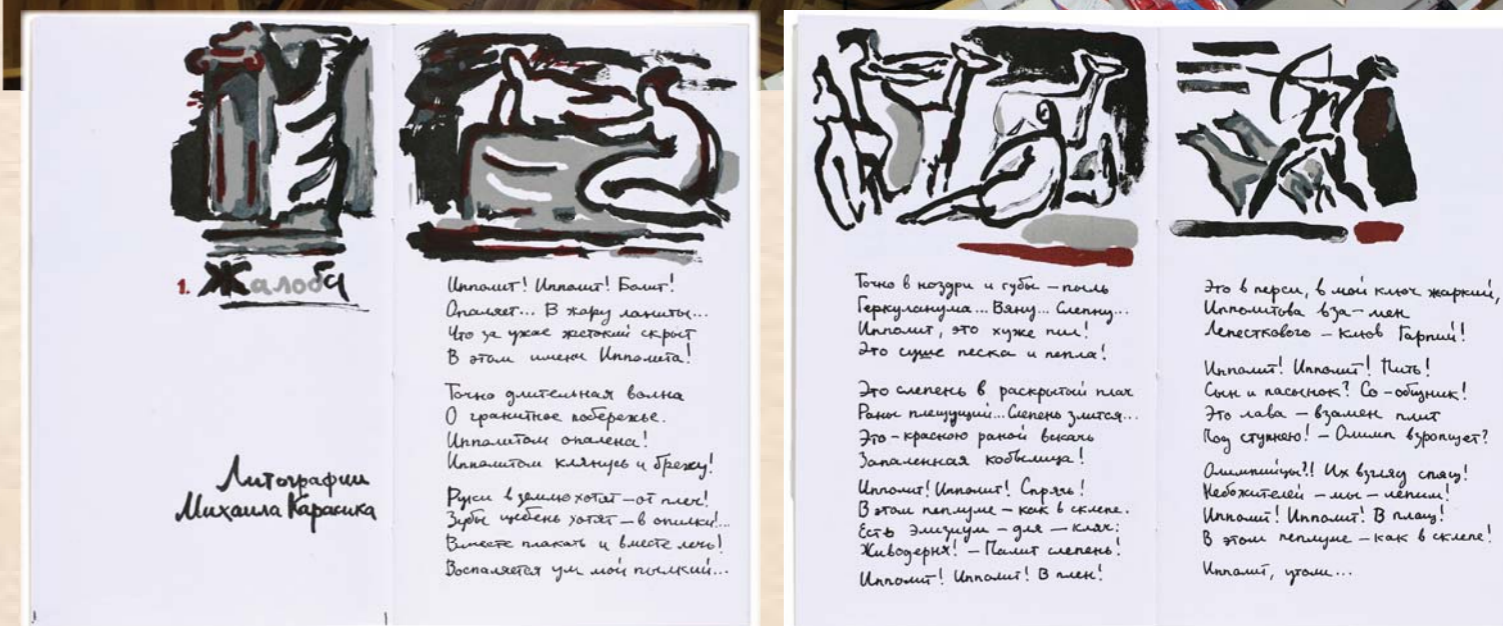 1. Жалоба
Литографии
Михаила Карасика
Ипполит! Ипполит! Болит!
Опаляет... В жару ланиты...
Что за ужас жестокий скрыт
В этом имени Ипполита!
Точно длительная волна
О гранитное побережье.
Ипполитом опалена!
Ипполитом клянусь и брежу!
Руки в землю хотят – от плеч!
Зубы щебень хотят – в опилки!...
Вместе плакать и вместе лечь!
Воспаляется ум мой пылкий...
Точно в ноздри и губы – пыль
Геркуланума... Вяну... Слепну...
Ипполит, это хуже пил!
Это суше песка и пепла!
Это слепень в раскрытый плач
Раны плещущей... Слепень злится...
Это – красною раной вскачь
Запаленная кобылица!
Ипполит! Ипполит! Спрячь!
В этом пеплуме – как в склепе.
Есть Элизиум – для – кляч:
Живодерня! – Палит слепень!
Ипполит! Ипполит! В плен!
Это в перси, в мой ключ жаркий,
Ипполитова вза – мен
Лепесткового – клюв Гарпий!
Ипполит! Ипполит! Пить!
Сын и пасынок? Со – общник!
Это лава – взамен плит
Под ступнею! – Олимп взропщет?
Олимпийцы?! Их взгляд спящ!
Небожителей – мы – лепим!
Ипполит! Ипполит! В плащ!
В этом пеплуме – как в склепе!
Ипполит, утоли...